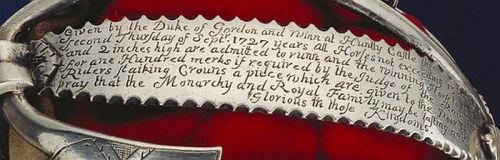 Given by the Duke of Gordon and runn at Huntly Castle the
second Thursday of Sept.r 1727 years all Horses not exceeding
and 2 inches high are admitted to runn and the winning
for ane Hundred merks if required by the Judge of the
Riders staiking Crowns a piece which are given to the Poor
pray that the Monarchy and Royal Family may be lasting and
Glorious in those Kingdoms